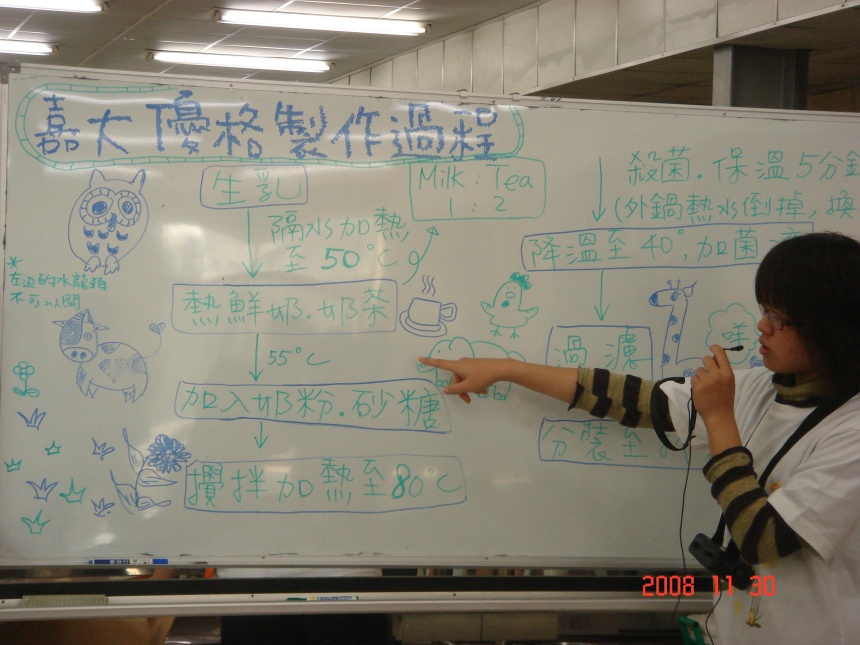 嘉大優格製作過程
生乳
隔水加熱
至50°C
Milk : Tea
1 : 2
熱鮮奶.奶茶
55°C
加入奶粉.砂糖
攪拌加熱至80°C
殺菌.保溫5分鐘
(外鍋熱水倒掉,換
降溫至40°,加菌
過濾
咩
分裝至
*
左边的水龍頭
不可以開
2008 11 30